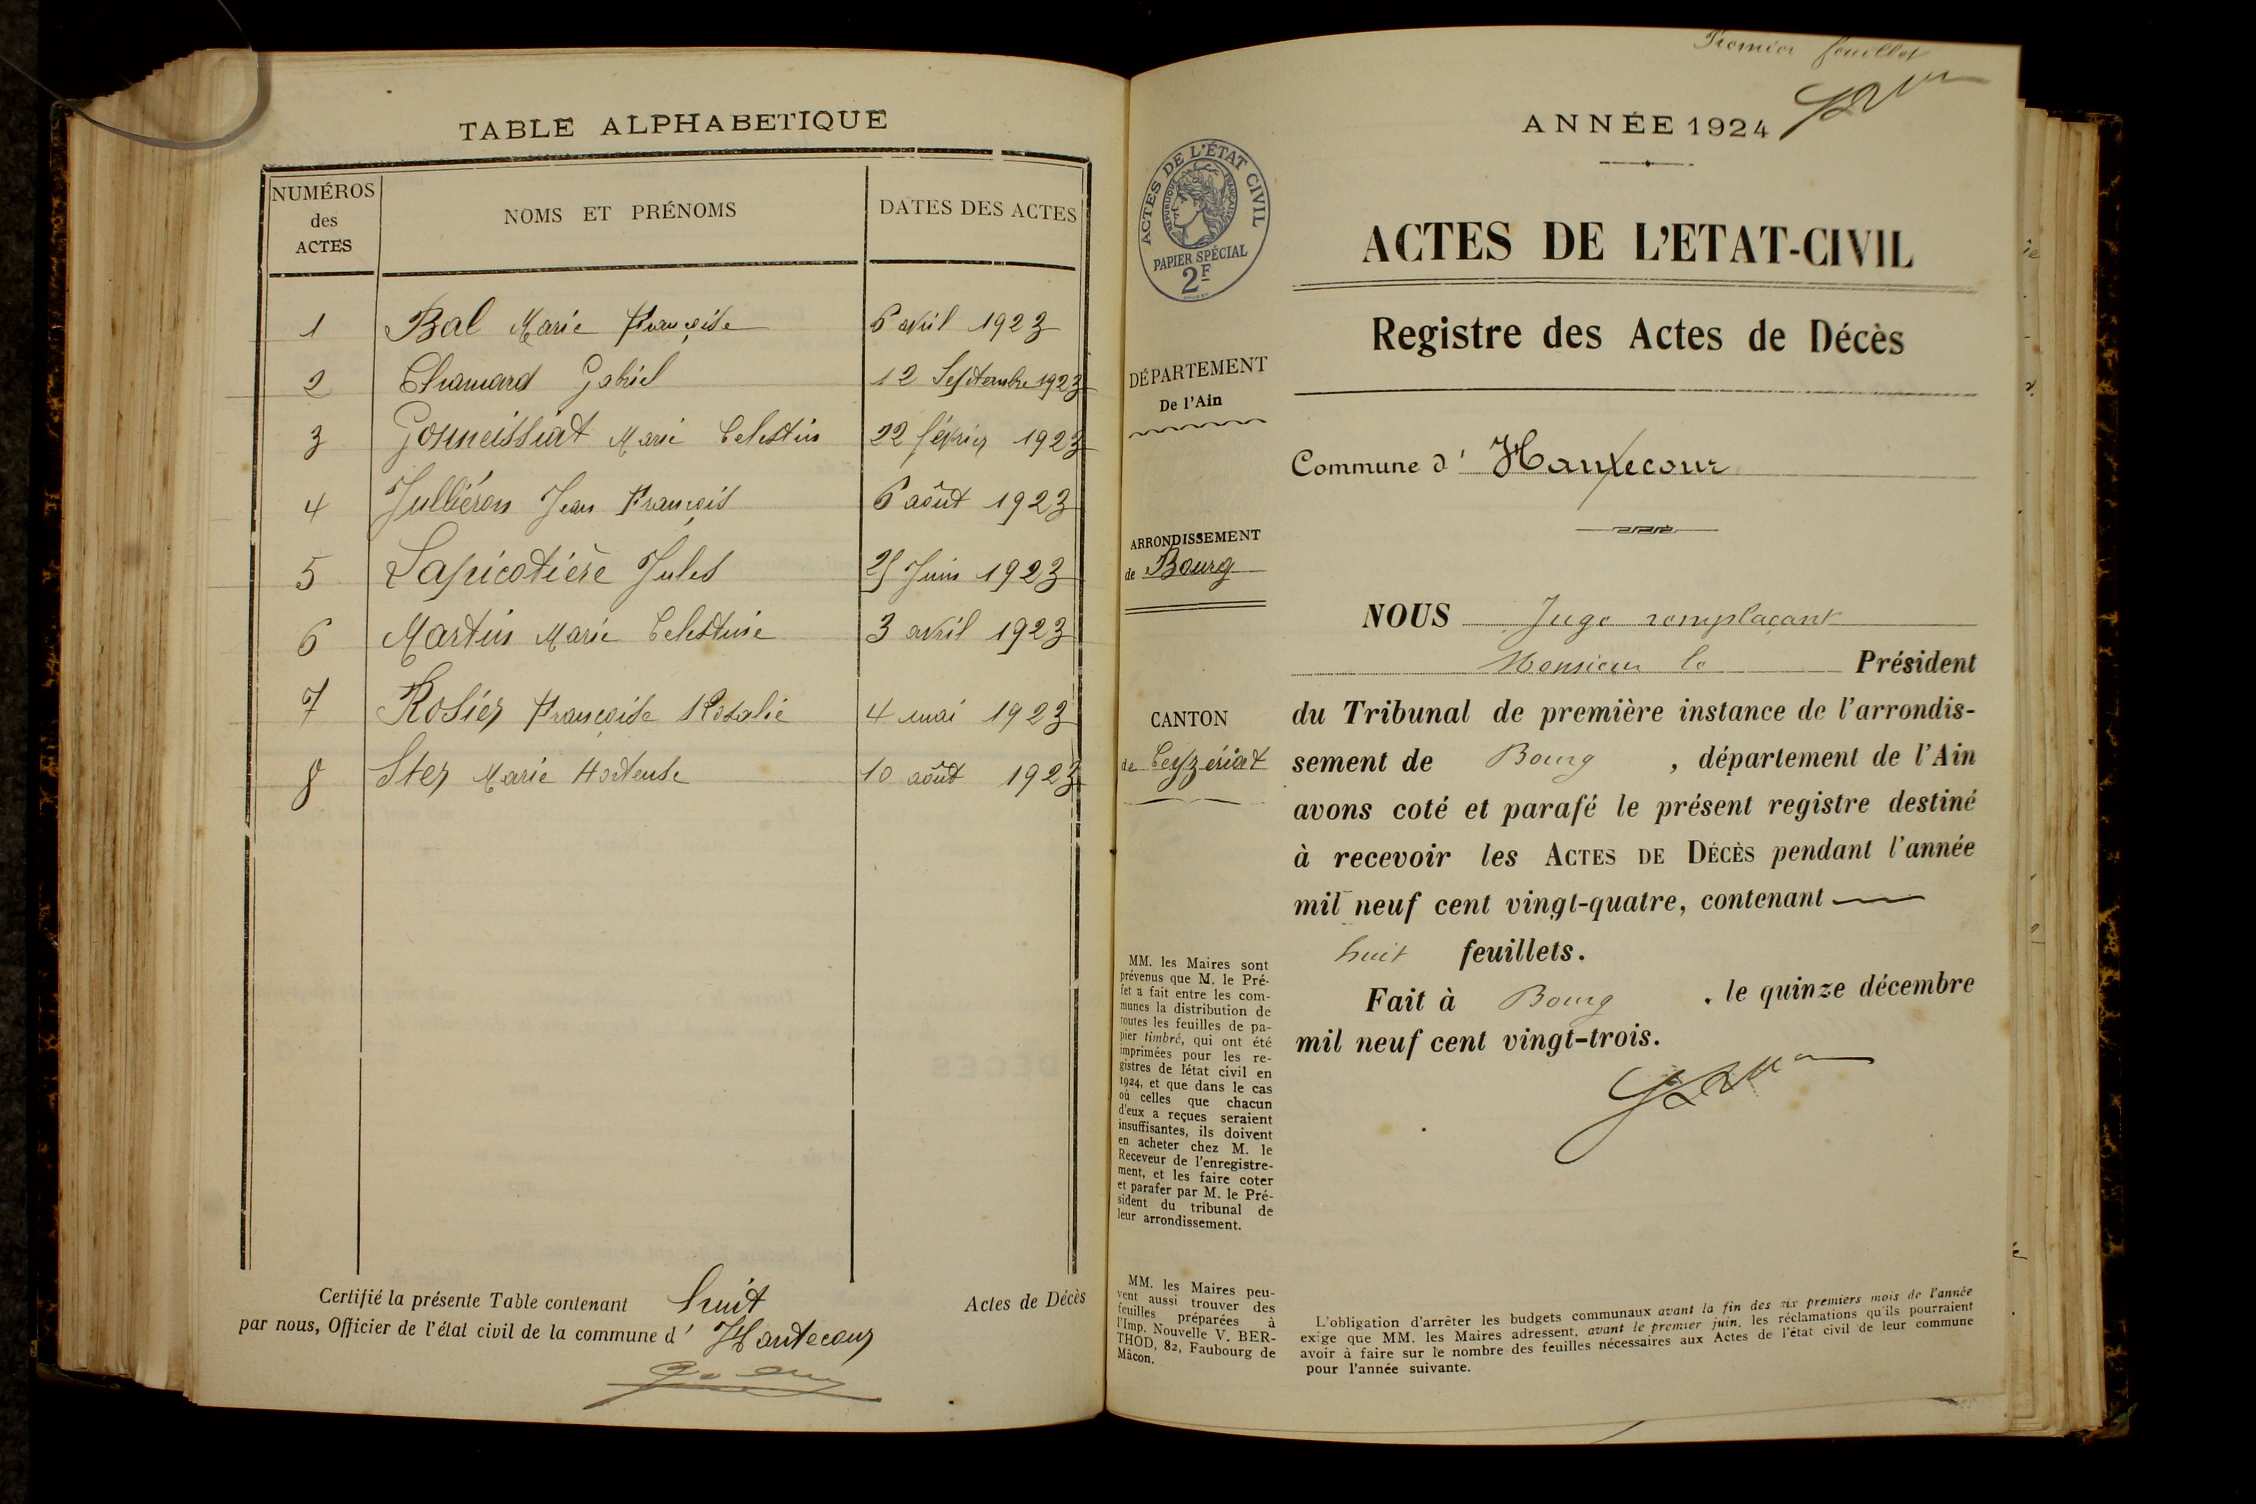 TABLE ALPHABETIQUE
NUMÉROS
des
ACTES
NOMS ET PRÉNOMS
DATES DES ACTES
1 Bal Marie Françoise 6 avril 1923
2 Chanard Gabriel 12 Septembre 1923
3 Gonneissiat Marie Celestin 22 février 1923
4 Julliéron Jean François 6 août 1923
5 Lapicotière Jules 25 Juin 1923
6 Martin Marie Celestine 3 avril 1923
7 Rosier Françoise Rosalie 4 mai 1923
8 Ster Marie Hortense 10 août 1923
Certifié la présente Table contenant huit Actes de Décès
par nous, Officier de l'état civil de la commune d' Hautecour
Premier feuillet
ANNÉE 1924
ACTES DE L'ÉTAT CIVIL
RÉPUBLIQUE FRANÇAISE
PAPIER SPÉCIAL
2F
ACTES DE L'ETAT-CIVIL
Registre des Actes de Décès
DÉPARTEMENT
De l'Ain
Commune d' Hautecour
ARRONDISSEMENT
de Bourg
CANTON
de Ceyzériat
NOUS Juge remplaçant
Monsieur le Président
du Tribunal de première instance de l'arrondis-
sement de Bourg, département de l'Ain
avons coté et parafé le présent registre destiné
à recevoir les ACTES DE DÉCÈS pendant l'année
mil neuf cent vingt-quatre, contenant
huit feuillets.
Fait à Bourg, le quinze décembre
mil neuf cent vingt-trois.
MM. les Maires sont
prévenus que M. le Pré-
fet a fait entre les com-
munes la distribution de
toutes les feuilles de pa-
pier timbré, qui ont été
imprimées pour les re-
gistres de l'état civil en
1924, et que dans le cas
où celles que chacun
d'eux a reçues seraient
insuffisantes, ils doivent
en acheter chez M. le
Receveur de l'enregistre-
ment, et les faire coter
et parafer par M. le Pré-
sident du tribunal de
leur arrondissement.
MM. les Maires peu-
vent aussi trouver des
feuilles préparées à
l'Imp. Nouvelle V. BER-
THOD, 82, Faubourg de
Mâcon.
L'obligation d'arrêter les budgets communaux avant la fin des six premiers mois de l'année
exige que MM. les Maires adressent, avant le premier juin, les réclamations qu'ils pourraient
avoir à faire sur le nombre des feuilles nécessaires aux Actes de l'état civil de leur commune
pour l'année suivante.